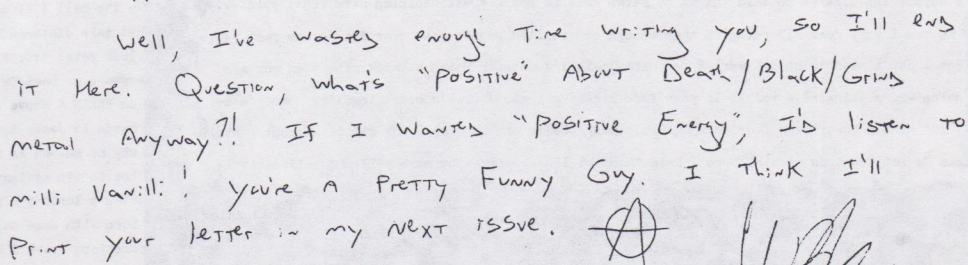 Well, I've wasted enough time writing you, so I'll end
it here. Question, what's "positive" about Death/Black/Grind
metal anyway?! If I wanted "positive energy", I'd listen to
milli Vanilli! You're a pretty funny guy. I think I'll
print your letter in my next issue.